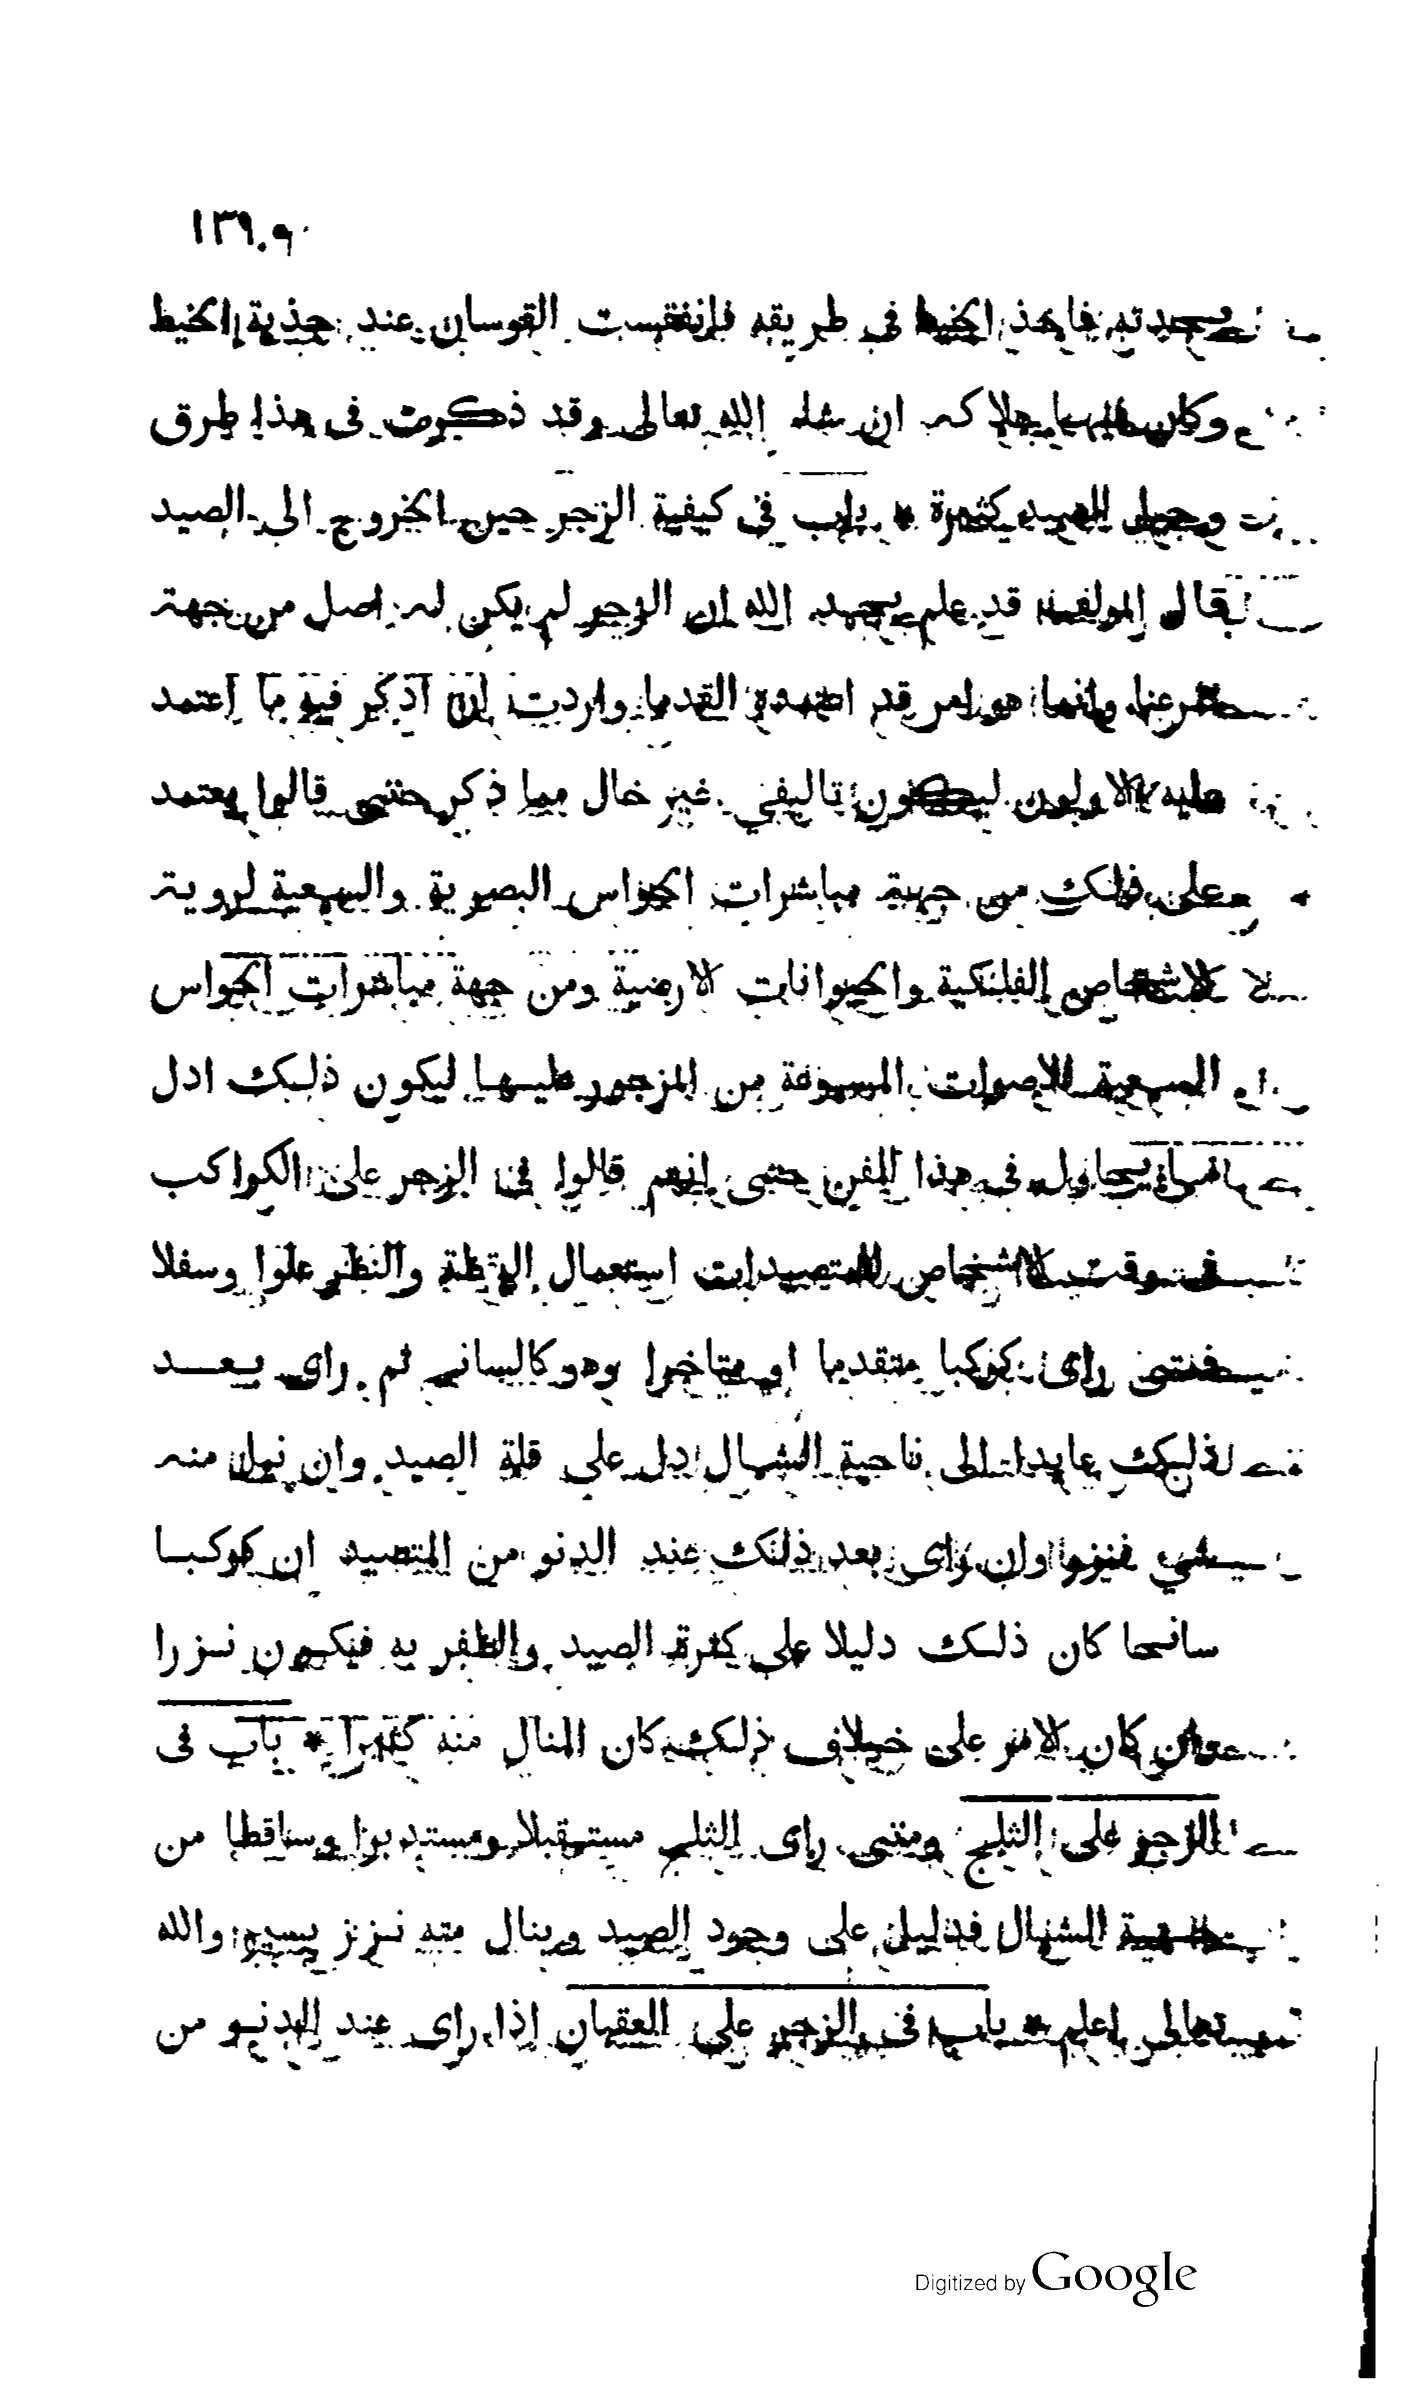 ١٣٩
بحدته فاخذ الخيط فى طريقه فانفقست القوسان عند جذبة الخيط
وكان فيها هلاكه ان شاء الله تعالى وقد ذكرت فى هذا طرق
وحيل الصيد كثيرة * باب فى كيفية الزجر حين الخروج الى الصيد
قال المولف قد علم بحمد الله ان الزجر لم يكن له اصل من جهة
شرعنا وانما هو امر قد اعتمده القدما واردت ان اذكر فيه ما اعتمد
عليه الاولون ليكون تاليفي غير خال مما ذكر حتى قالوا يعتمد
على ذلك من جهة مباشرات الحواس البصرية والسمعية لروية
الاشخاص الفلكية والحيوانات الارضية ومن جهة مباشرات الحواس
السمعية للاصوات المسموعة من المزجور عليها ليكون ذلك ادل
يحاول فى هذا الفن حتى انهم قالوا فى الزجر على الكواكب
فى وقت الاشخاص للمتصيدات استعمال اليقظة والنظر علوا وسفلا
فمتى راى كوكبا متقدما او متاخرا وهو كالساني ثم راى بعد
ذلك عايدا الى ناحية الشمال دل على قلة الصيد وان نيل منه
شي فنزرا وان راى بعد ذلك عند الدنو من المتصيد ان كوكبا
سانحا كان ذلك دليلا على كثرة الصيد والظفر به فيكون نزرا
وان كان الامر على خلاف ذلك كان المنال منه كثيرا * باب فى
الزجر على الثلج ومتى راى الثلج مستقبلا ومستدبرا وساقطا من
جهة الشمال فدليل على وجود الصيد وينال منه نزز يسير والله
تعالى اعلم * باب فى الزجر على العقبان اذا راى عند الدنو من
Digitized by Google